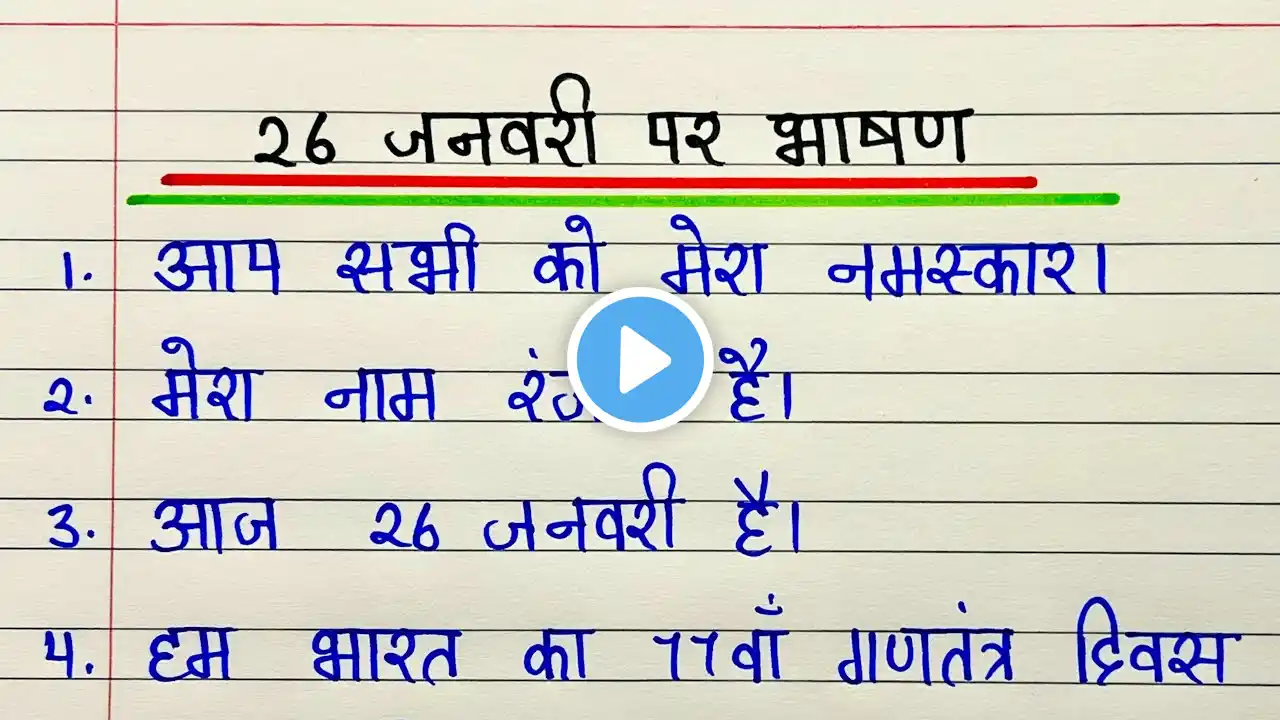 26 जनवरी पर भाषण
1. आप सभी को मेरा नमस्कार।
2. मेरा नाम है।
3. आज 26 जनवरी है।
4. हम भारत का 77वाँ गणतंत्र दिवस